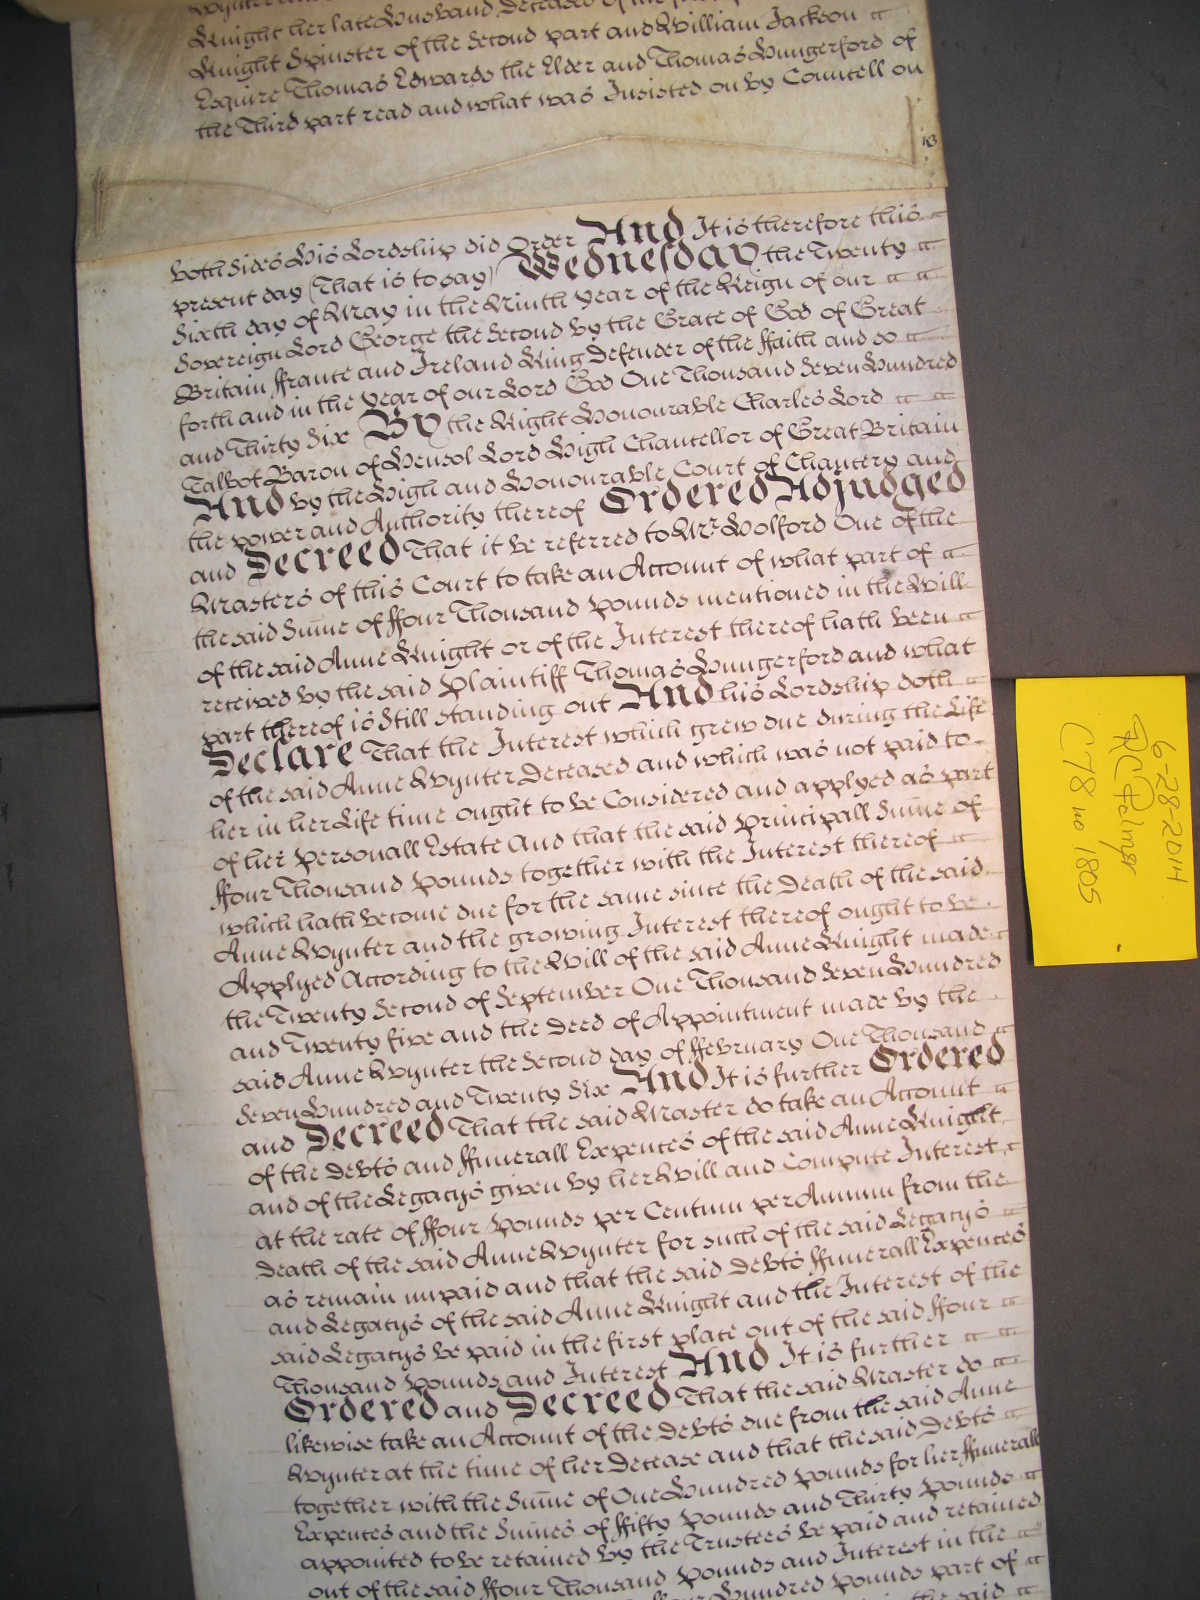 Knight her late Husband Deceased of the
Knight Spinster of the Second part and William Jackson
Esquire Thomas Edwards the Elder and Thomas Hungerford of
the Third part read and what was Insisted on by Councell on
13
both sides His Lordship did Order And It is therefore this
present day (That is to say) Wednesday the Twenty
Sixth day of May in the Ninth year of the Reign of our
Sovereign Lord George the Second by the Grace of God of Great
Britain ffrance and Ireland King Defender of the ffaith and so
forth and in the year of our Lord God One Thousand Seven Hundred
and Thirty Six By the Right Honourable Charles Lord
Talbot Baron of Hensol Lord High Chancellor of Great Britain
And by the High and Honourable Court of Chancery and
the power and Authority thereof Ordered Adjudged
and Decreed That it be referred to Mr. Holford One of the
Masters of this Court to take an Account of what part of
the said Sume of ffour Thousand Pounds mentioned in the Will
of the said Anne Knight or of the Interest thereof hath been
received by the said Plaintiff Thomas Hungerford and what
part thereof is Still standing out And his Lordship doth
Declare That the Interest which grew due during the Life
of the said Anne Wynter Deceased and which was not paid to
her in her Life time ought to be Considered and applyed as part
of her Personall Estate And that the said Principall Sume of
ffour Thousand Pounds together with the Interest thereof
which hath become due for the same since the Death of the said
Anne Wynter and the growing Interest thereof ought to be
Applyed According to the Will of the said Anne Knight made
the Twenty Second of September One Thousand Seven Hundred
and Twenty five and the Deed of Appointment made by the
said Anne Wynter the Second day of ffebruary One Thousand
Seven Hundred and Twenty Six And It is further Ordered
and Decreed That the said Master do take an Account
of the Debts and ffunerall Expences of the said Anne Knight
and of the Legacys given by her Will and Compute Interest
at the rate of ffour Pounds per Centum per Annum from the
Death of the said Anne Wynter for such of the said Legacys
as remain unpaid and that the said Debts ffunerall Expences
and Legacys of the said Anne Knight and the Interest of the
said Legacys be paid in the first place out of the said ffour
Thousand Pounds and Interest And It is further
Ordered and Decreed That the said Master do
likewise take an Account of the Debts due from the said Anne
Wynter at the time of her Decease and that the said Debts
together with the Sume of One Hundred Pounds for her ffunerall
Expences and the Sumes of ffifty Pounds and Thirty Pounds
appointed to be retained by the Trustees be paid and retained
out of the said ffour Thousand Pounds and Interest in the
Hundred Pounds part of
the said
6-28-2014
RC Palmer
C78 no 1805